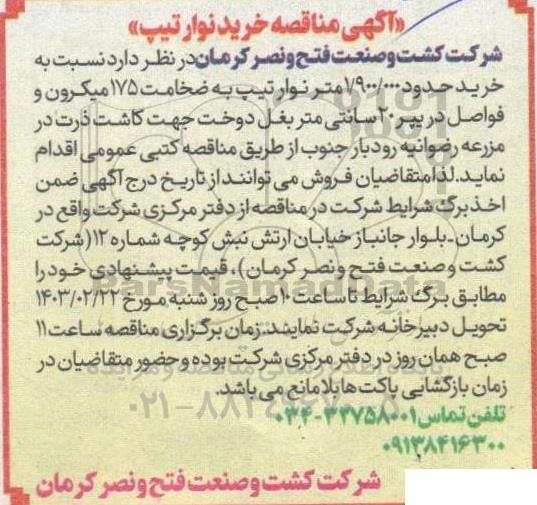 «آگهی مناقصه خرید نوار تیپ»
شرکت کشت و صنعت فتح و نصر کرمان در نظر دارد نسبت به
خرید حدود ۷/۹۰۰/۰۰۰ متر نوار تیپ به ضخامت ۱۷۵ میکرون و
فواصل دریپر ۲۰ سانتی متر بغل دوخت جهت کاشت ذرت در
مزرعه رضوانیه رودبار جنوب از طریق مناقصه کتبی عمومی اقدام
نماید. لذا متقاضیان فروش می توانند از تاریخ درج آگهی ضمن
اخذ برگ شرایط شرکت در مناقصه از دفتر مرکزی شرکت واقع در
کرمان-بلوار جانباز خیابان ارتش نبش کوچه شماره ۱۲(شرکت
کشت و صنعت فتح و نصر کرمان)، قیمت پیشنهادی خود را
مطابق برگ شرایط تا ساعت ۱۰ صبح روز شنبه مورخ ۱۴۰۳/۰۲/۲۲
تحویل دبیرخانه شرکت نمایند. زمان برگزاری مناقصه ساعت ۱۱
صبح همان روز در دفتر مرکزی شرکت بوده و حضور متقاضیان در
زمان بازگشایی پاکت ها بلامانع می باشد.
تلفن تماس ۳۲۷۵۸۰۰۱-۰۳۴
۰۹۱۳۸۴۱۶۳۰۰
شرکت کشت و صنعت فتح و نصر کرمان
ParsNamadData